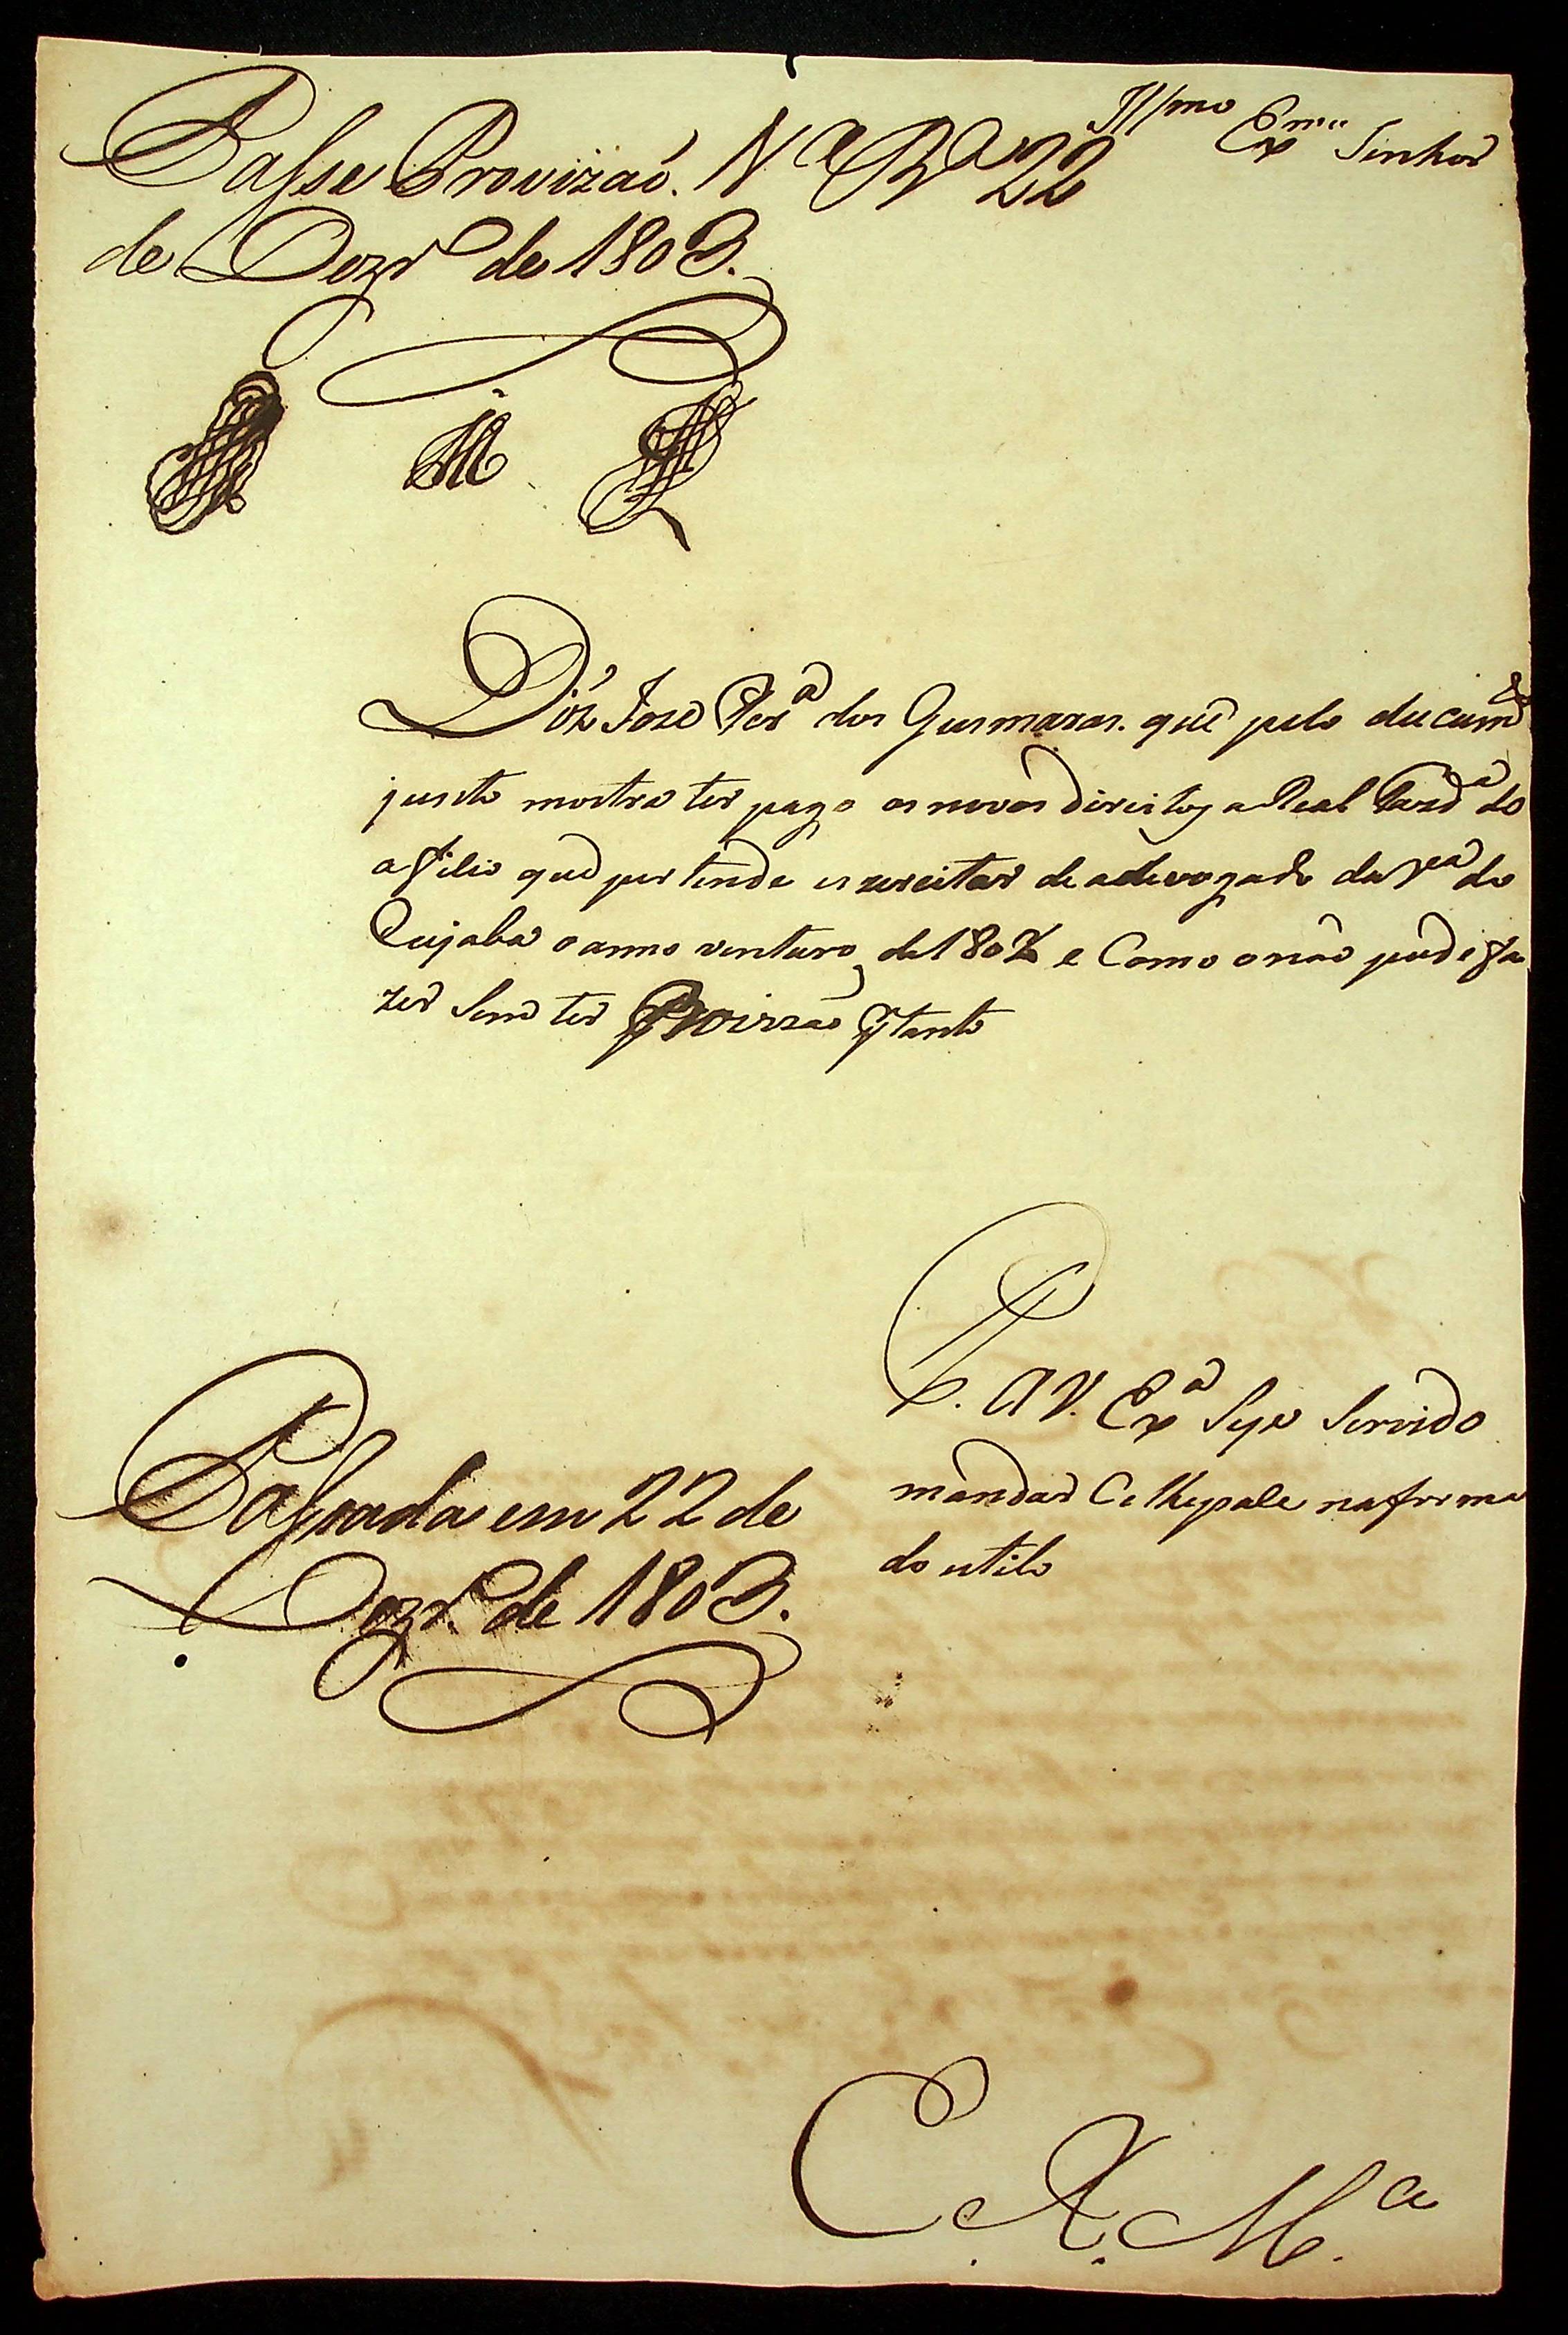 Illmo Exmo Senhor
Passe Provizaõ. Va Ba 22
de Dezro de 1803.
M
Diz Joze Pera dos Guimaraes. que pelo documto
junto mostra ter pago os novos direitos a Real Fazda do
offisio que pertende exzercitar de advogado da Va do
Cujaba o anno venturo de 1804 e Como o não pode fa
zer Sem ter Provizão ptanto
P. a V. Exa Seja Servido
mandar Ce lhe pase na forma
do estilo
Passada em 22 de
Dezro de 1803.
E. R. Ma